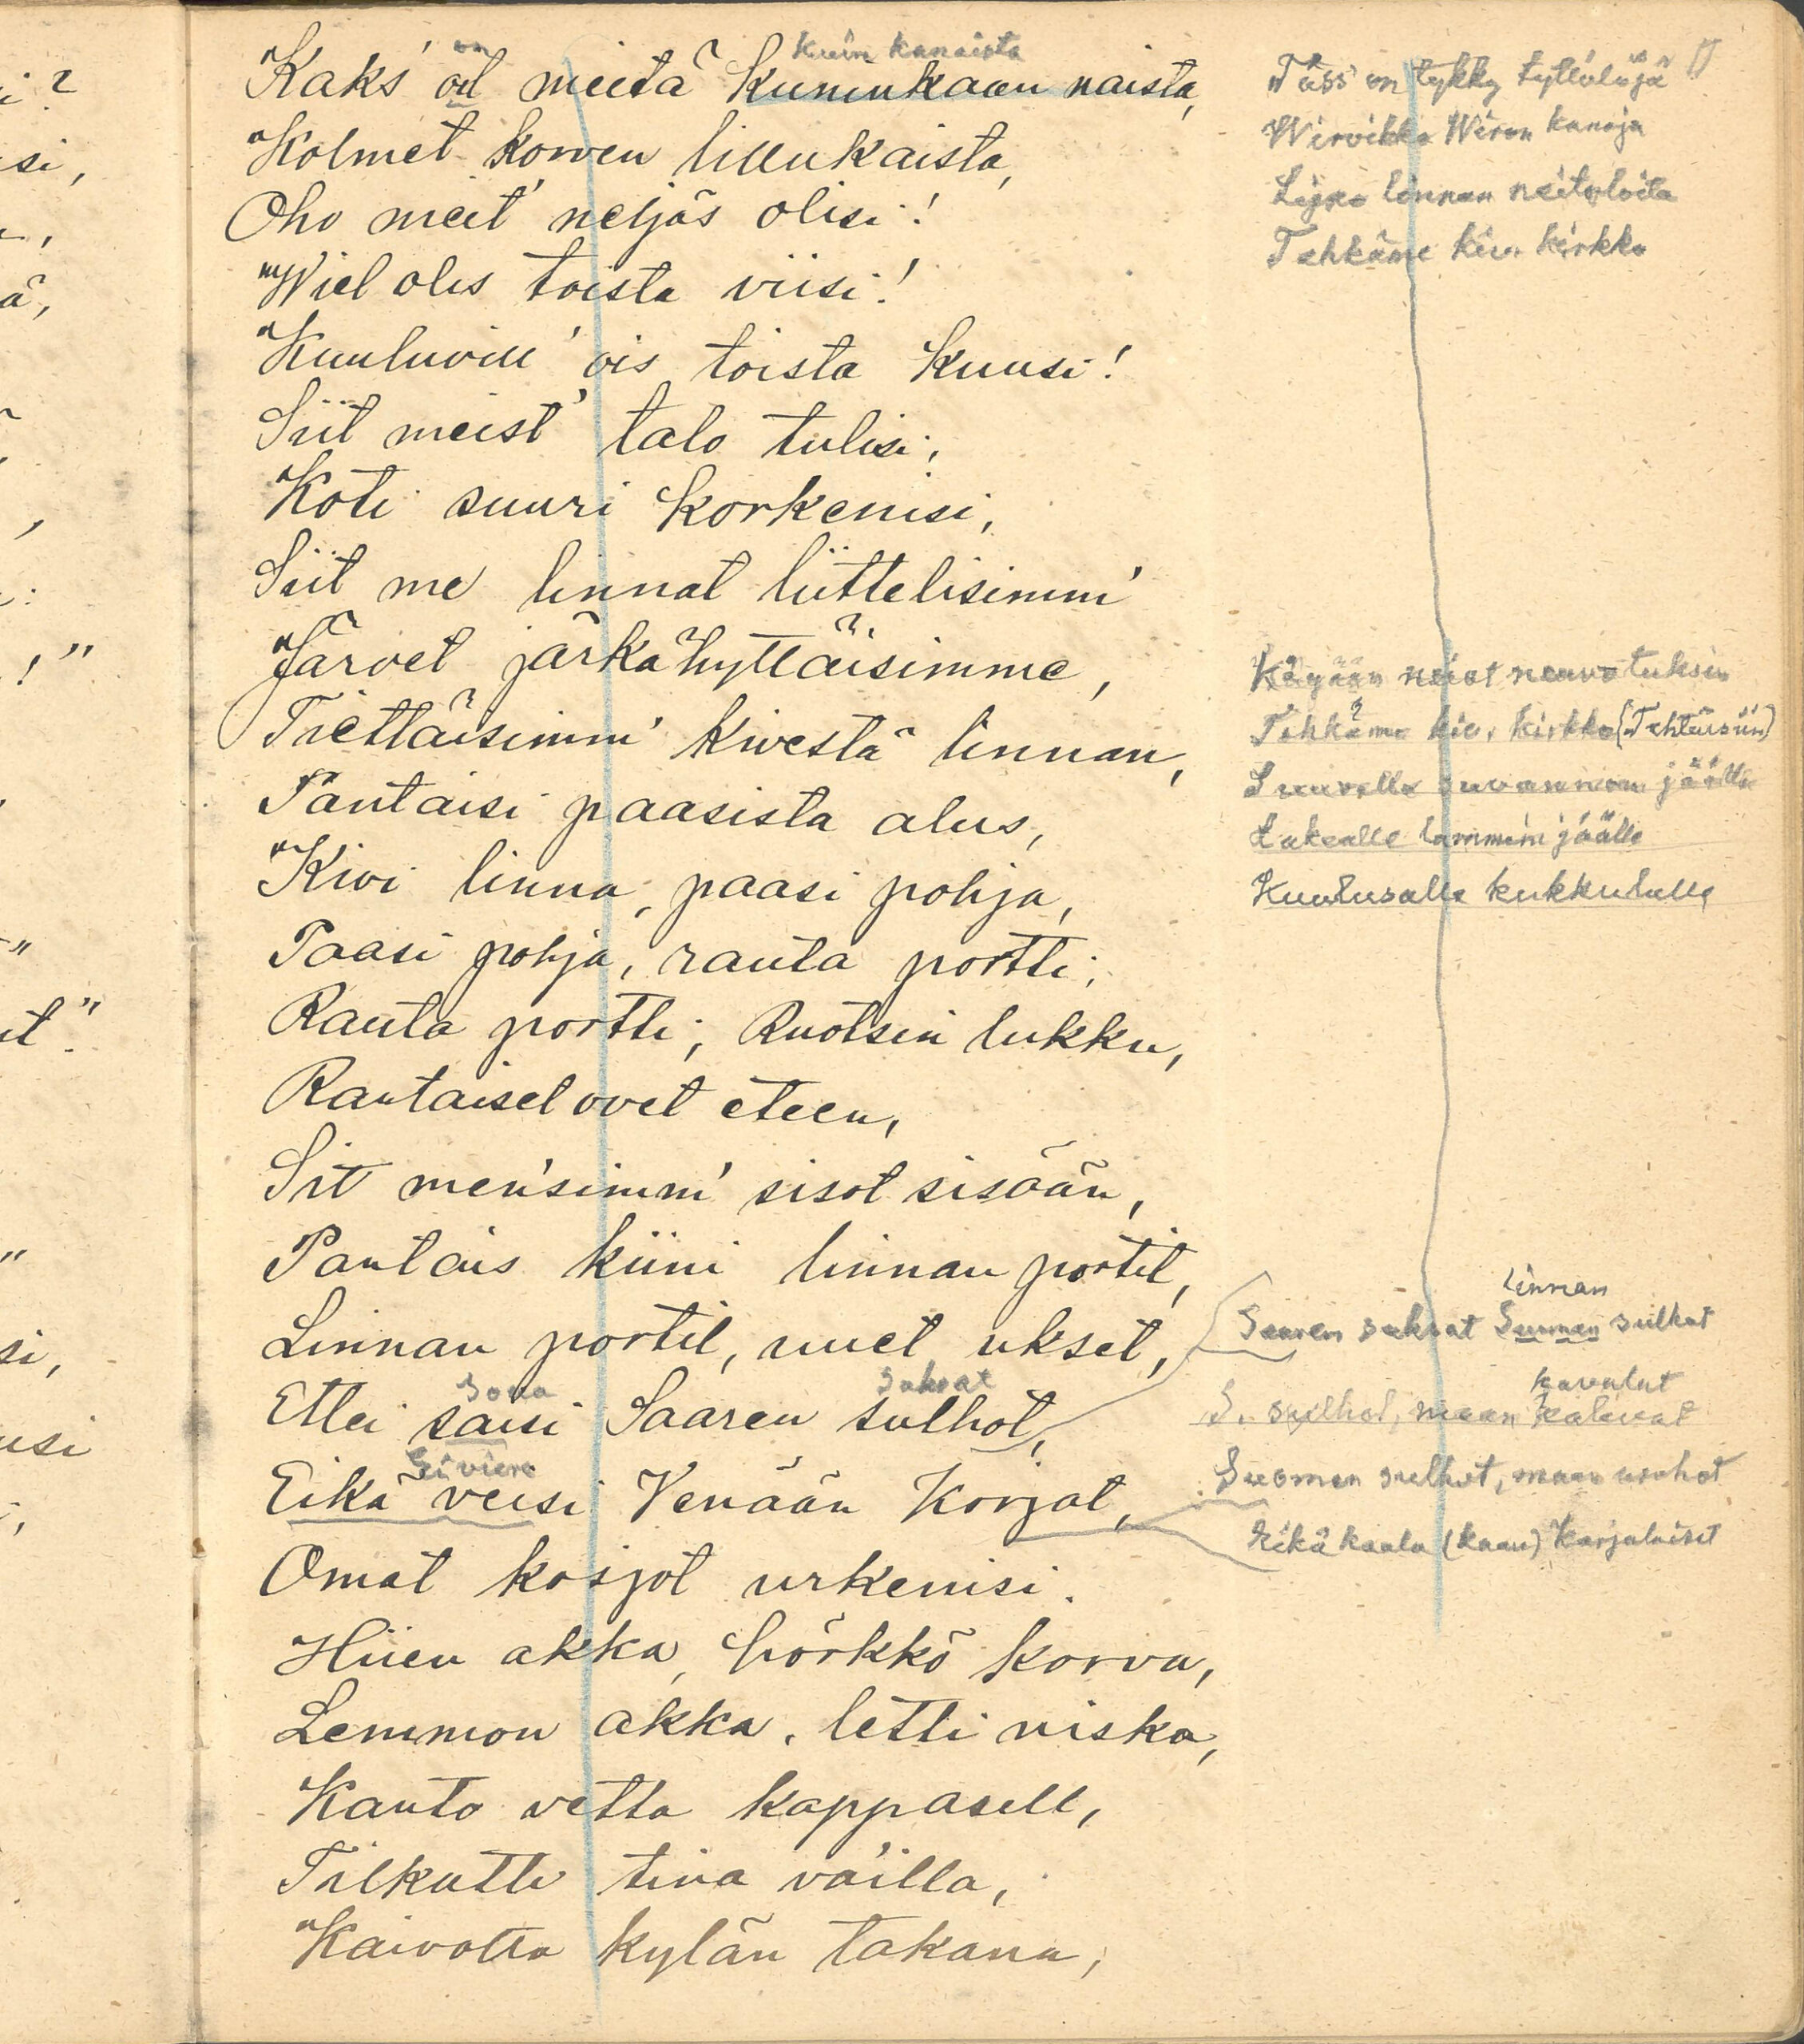 on kuin kanaista
Kaks' ol meitä kuninkaan naista,
Kolmet korven lillukaista,
Oho meit' neljäs olisi!
Wiel olis toista viisi!
Kuuluvill' ois toista kuusi!
Siit meist' talo tulisi,
Koti suuri korkenisi,
Siit me linnat liittelisimm'
Järvet järkähyttäisimme,
Tiettäisimm' kivestä linnan,
Pantaisi paasista alus,
Kivi linna, paasi pohja,
Paasi pohja, rauta portti;
Rauta portti; Ruotsin lukku,
Rautaiset ovet eteen,
Sit men'simm' sisot sisään,
Pantais kiini linnan portit,
Linnan portit, uuet ukset,
Sova sukvat
Ettei saisi Saaren sulhot,
Ei viere
Eikä veisi Venään Korjat,
Omat kosjot urkenisi.
Hiien akka, hörkkö korva,
Lemmon akka, letti niska,
Kanto vettä kappasell,
Tilkutti tina vailla,
Kaivolta kylän takana,
Täss' on tykky tyttölöjä
Wirvikko Wiron kanoja
Lijko linnan neitoloita
Tehkäme kiv. kirkko
Käykään neiot neuvotuksin
Tehkäme kiv. kirkko (Tehtäisiin)
Suurelle suvannon jäälle
Lakealle lammin jäälle
Kuulusalle kukkulalle
linnan
Saaren sukvat Suomen sulhot
kavalat
S. sulhot, maan kalevat
Suomen sulhot, maan urohot
Eikä kaala (kaau) karjalaiset